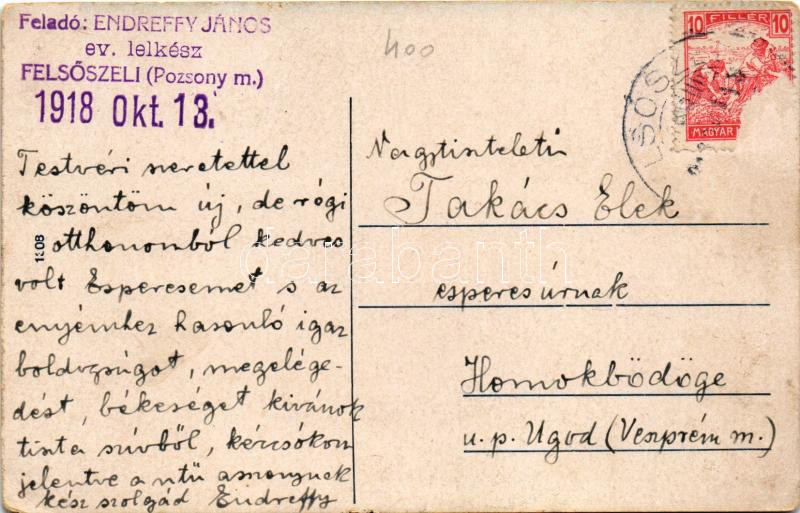 Feladó: ENDREFFY JÁNOS
ev. lelkész
FELSŐSZELI (Pozsony m.)
1918 Okt. 13.
400
10 FILLÉR 10
MAGYAR
LSŐS
Testvéri szeretettel
köszöntöm új, de régi
otthonomból kedves
volt Esperesemet s az
enyémhez hasonló igaz
boldogságot, megelége-
dést, békeséget kivánok
tiszta szívből, kézcsókom
jelentve a ntü asszonynak
kész szolgád Endreffy
1308
Nagytiszteletü
Takács Elek
esperes úrnak
Homokbödöge
u. p. Ugod (Veszprém m.)
darabanth